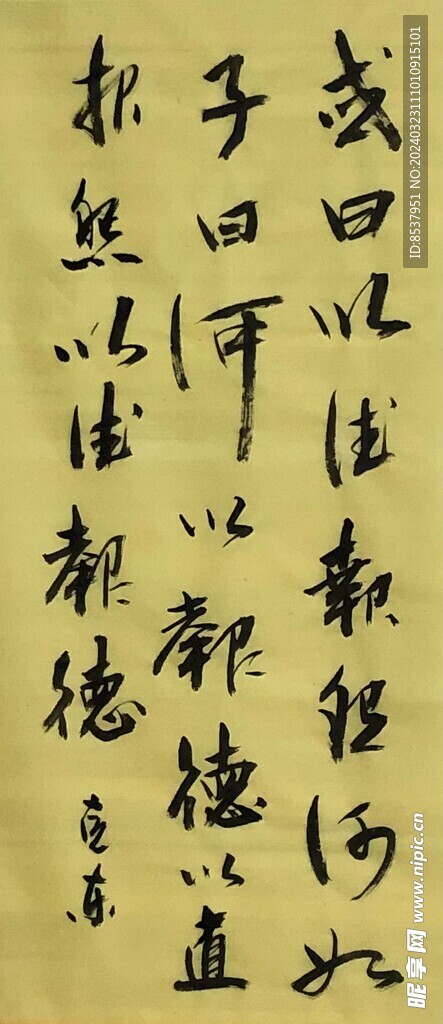 或曰以德報怨何如
子曰何以報德以直
报怨以德報德
ID:8537951 NO:20240323111010915101
昵享网 www.nipic.cn